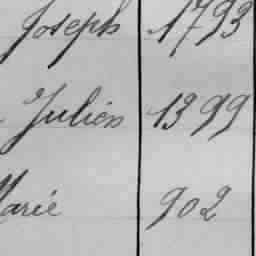 Joseph 1793
Julien 1399
Marie 902